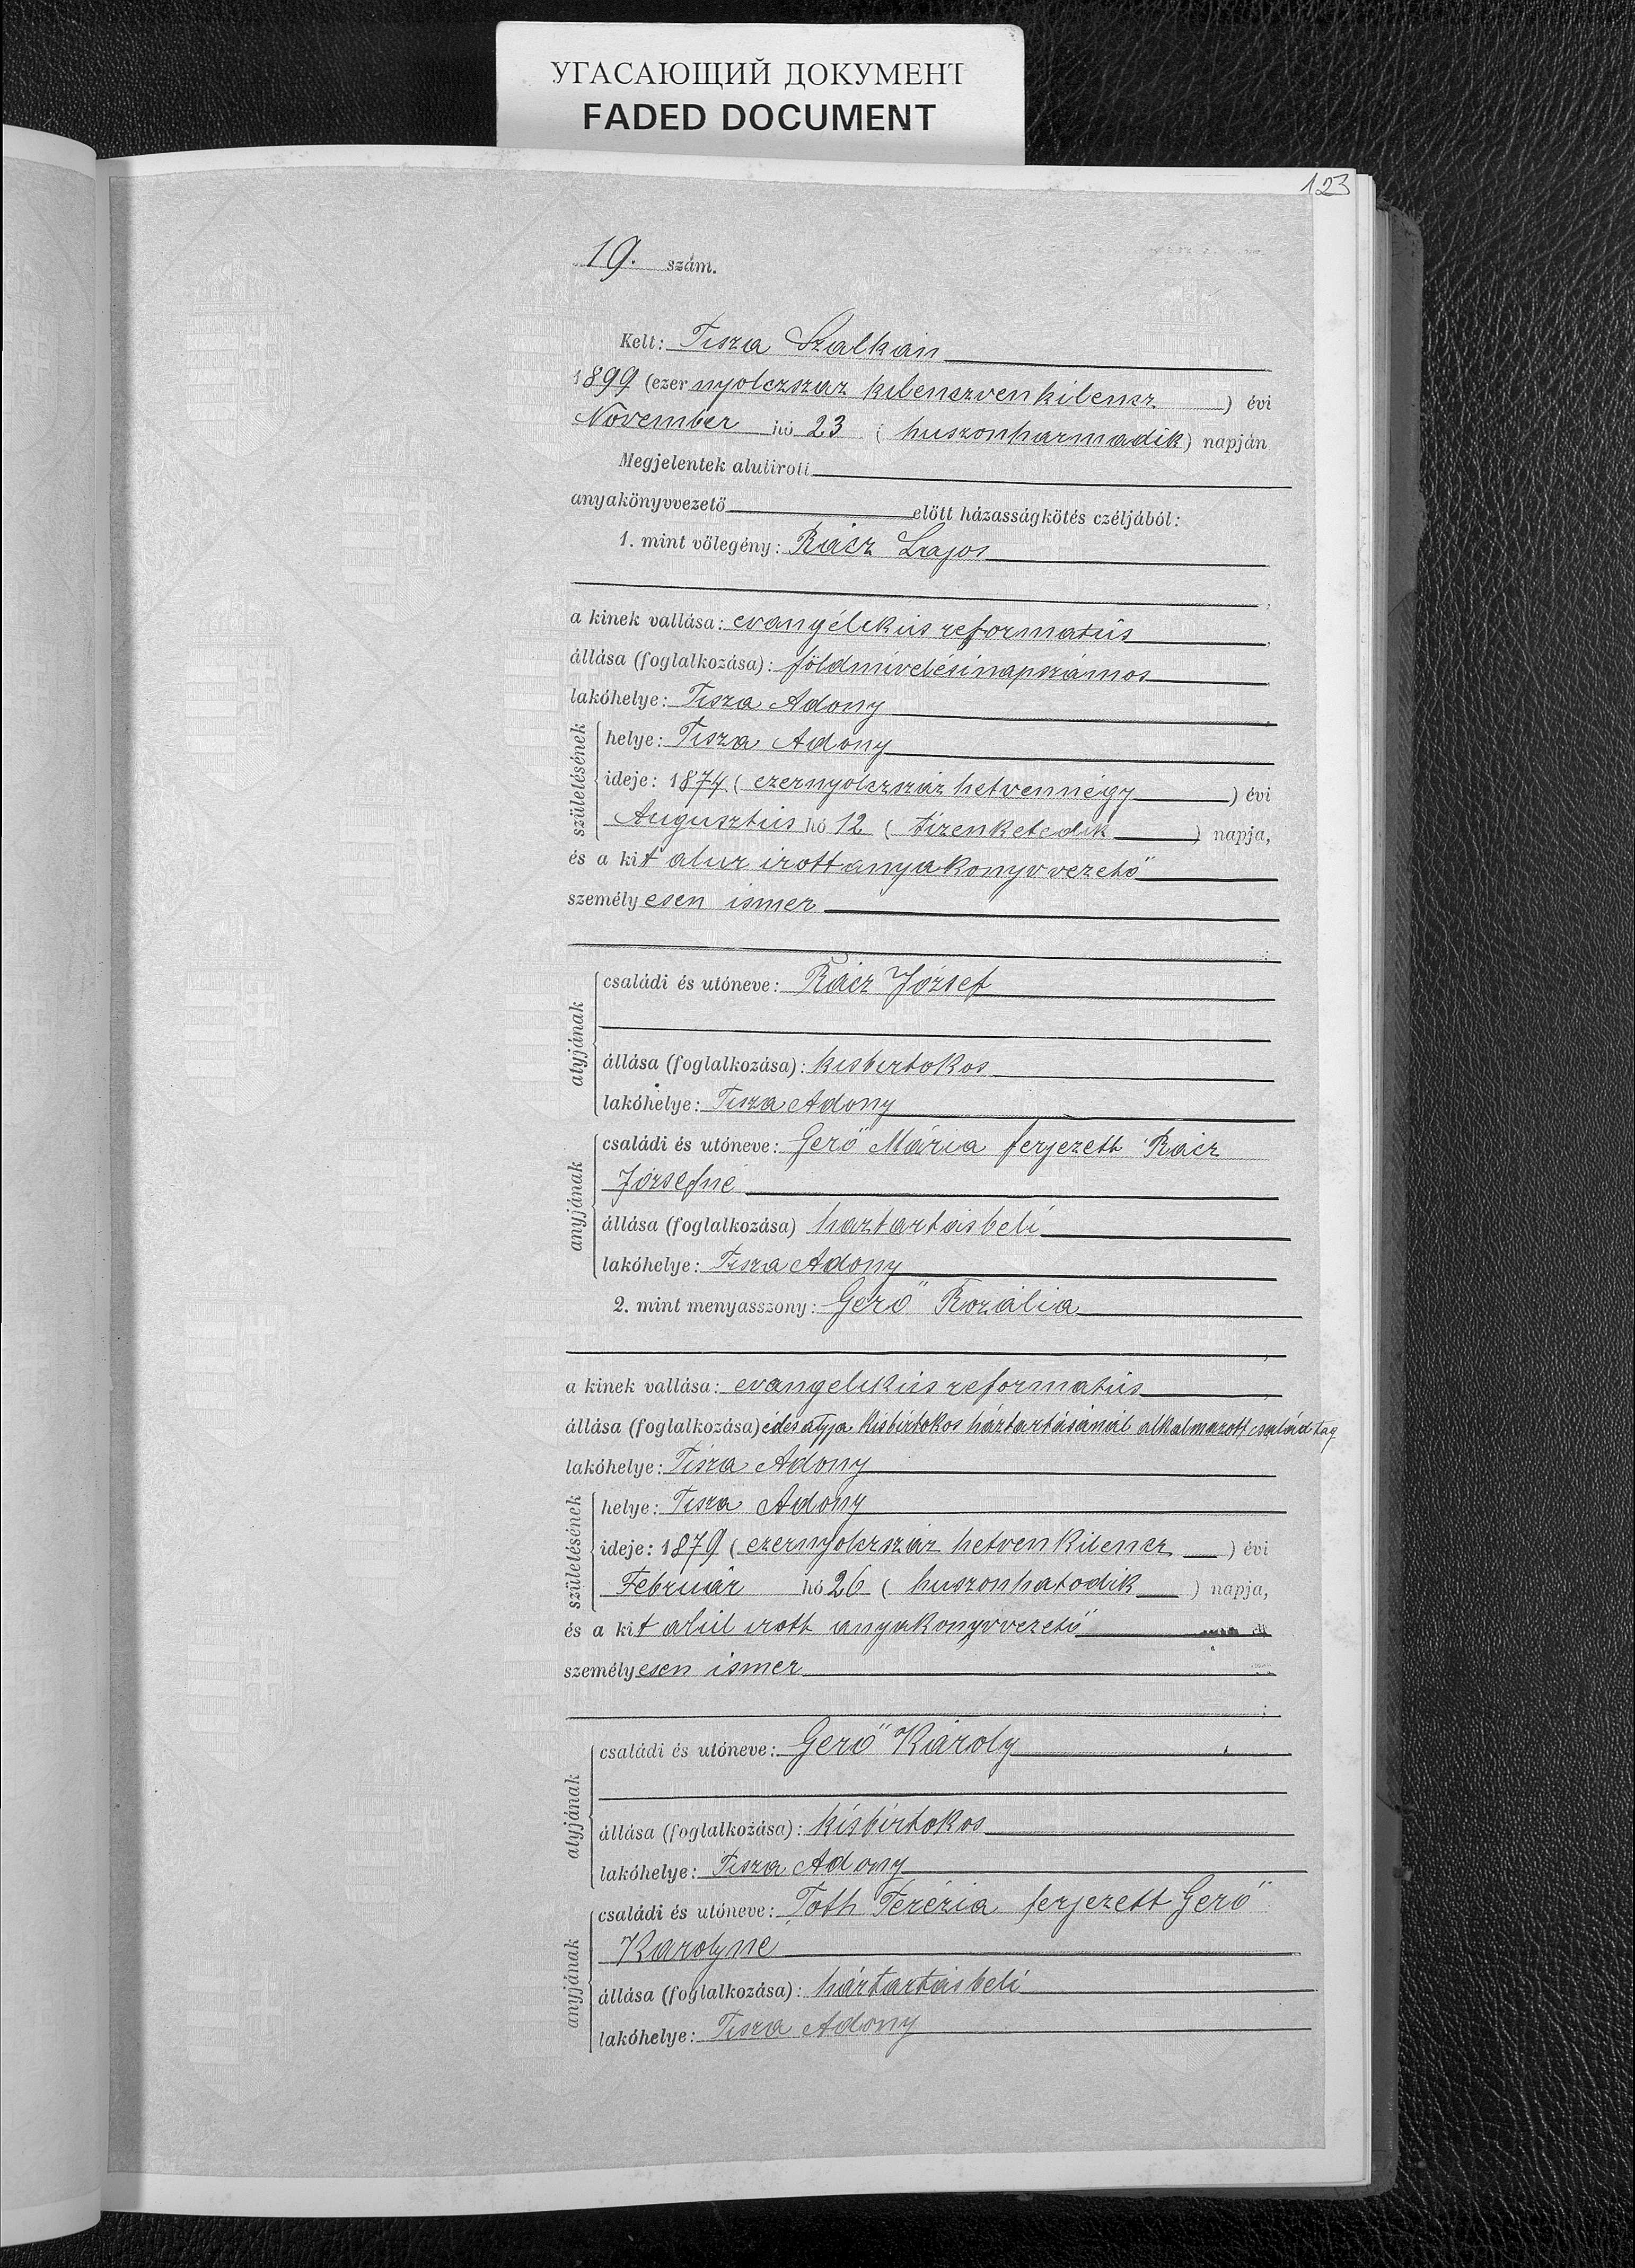 УГАСАЮЩИЙ ДОКУМЕНТ
FADED DOCUMENT
123
19. szám.
Kelt: Tisza Szalkán
1899 (ezer nyolczszaz kilenczven kilencz ) évi
November hó 23 ( huszonharmadik) napján
Megjelentek alulirott
anyakönyvvezető előtt házasságkötés czéljából:
1. mint vőlegény: Rácz Lajos
a kinek vallása: evangélikús reformatús
állása (foglalkozása): földmivelési napszámos
lakóhelye: Tisza Adony
születésének
helye: Tisza Adony
ideje: 1874 ( ezernyolczszáz hetvennégy ) évi
Augusztús hó 12 ( tizenketedik ) napja,
és a kit alul irott anyakonyvvezető
személyesen ismer
atyjának
családi és utóneve: Rácz József
állása (foglalkozása): kisbirtokos
lakóhelye: Tisza Adony
anyjának
családi és utóneve: Gerő Mária ferjezett Rácz
Józsefné
állása (foglalkozása) haztartásbeli
lakóhelye: Tisza Adony
2. mint menyasszony: Gerő Rozália
a kinek vallása: evangelikús reformatús
állása (foglalkozása) édes atyja kisbirtokos háztartásánál alkalmazott család tag
lakóhelye: Tisza Adony
születésének
helye: Tisza Adony
ideje: 1879 ( ezernyolczszáz hetven kilencz ) évi
Február hó 26 ( huszonhatodik ) napja,
és a kit alúl irott anyakonyvvezető
személyesen ismer
atyjának
családi és utóneve: Gerő Károly
állása (foglalkozása): kisbirtokos
lakóhelye: Tisza Adony
anyjának
családi és utóneve: Toth Terézia ferjezett Gerő
Karolyne
állása (foglalkozása): háztartásbeli
lakóhelye: Tisza Adony